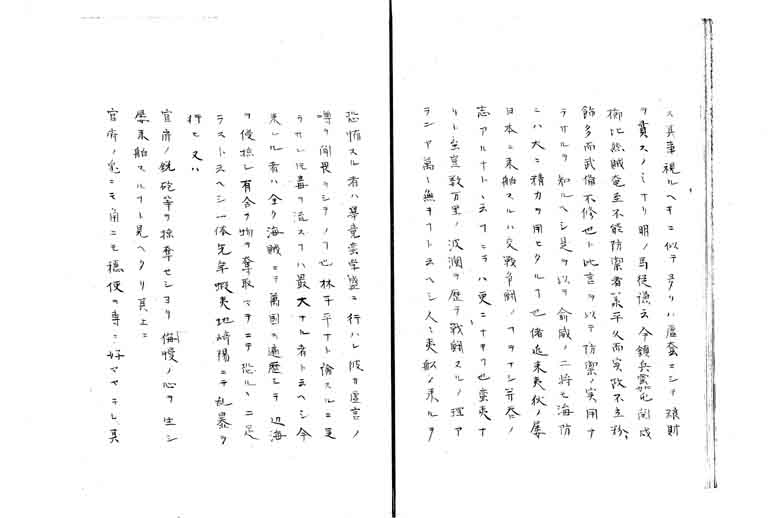 ス其事視ルヘキニ似テ多クハ虚奓ニシテ張財
ヲ貰スノミナリ明ノ馬従謙云今鎮兵雲屯関戍
櫛比然賊竜至不能防禦者承平久而実政不立粉
飾多而武備不修也ト此言ヲ以テ防禦ノ実用ヲ
ラサルヲ知ルヘシ是ヲ以テ俞戚ノ二将モ海防
ニハ大ニ精力ヲ用ヒタルフ也偖近来夷狄ノ屡
日本ニ来船スルハ交戦争闘ノフヲナシ并呑ノ
志アルナト云フニテハ更ニナキフ也蛮夷ナ
リト至重数万里ノ波瀾ヲ歴テ戦闘スルノ理ア
ランヤ萬々無キフト云ヘシ人々夷船ノ来ルヲ
恐怖スル者ハ畢竟蛮学盛ニ行ハレ彼カ虚言ノ
噂ヲ聞畏ヲシテノフ也林子平ナト論スルニ足
ラサレ𪜈毒ヲ流スフハ最大ナル者ト云ヘシ今
来レル者ハ全ク海賊ニテ萬国ヲ遍歴シテ辺海
ヲ侵掠シ有合ノ物ヲ奪取マテニテ恐ルヽニ足
ラスト云ヘシ一体先年蝦夷地崎陽ニテ乱暴ヲ
捋セ又ハ
官府ノ銃砲等ヲ掠奪セシヨリ侮慢ノ心ヲ生シ
屡来船スルフト見ヘタリ其上ニ
官府ノ兎ニモ角ニモ穏便ノ事ニ好マセラレ其